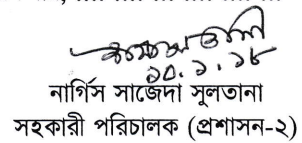 ১০.১.১৮
নার্গিস সাজেদা সুলতানা
সহকারী পরিচালক (প্রশাসন-২)